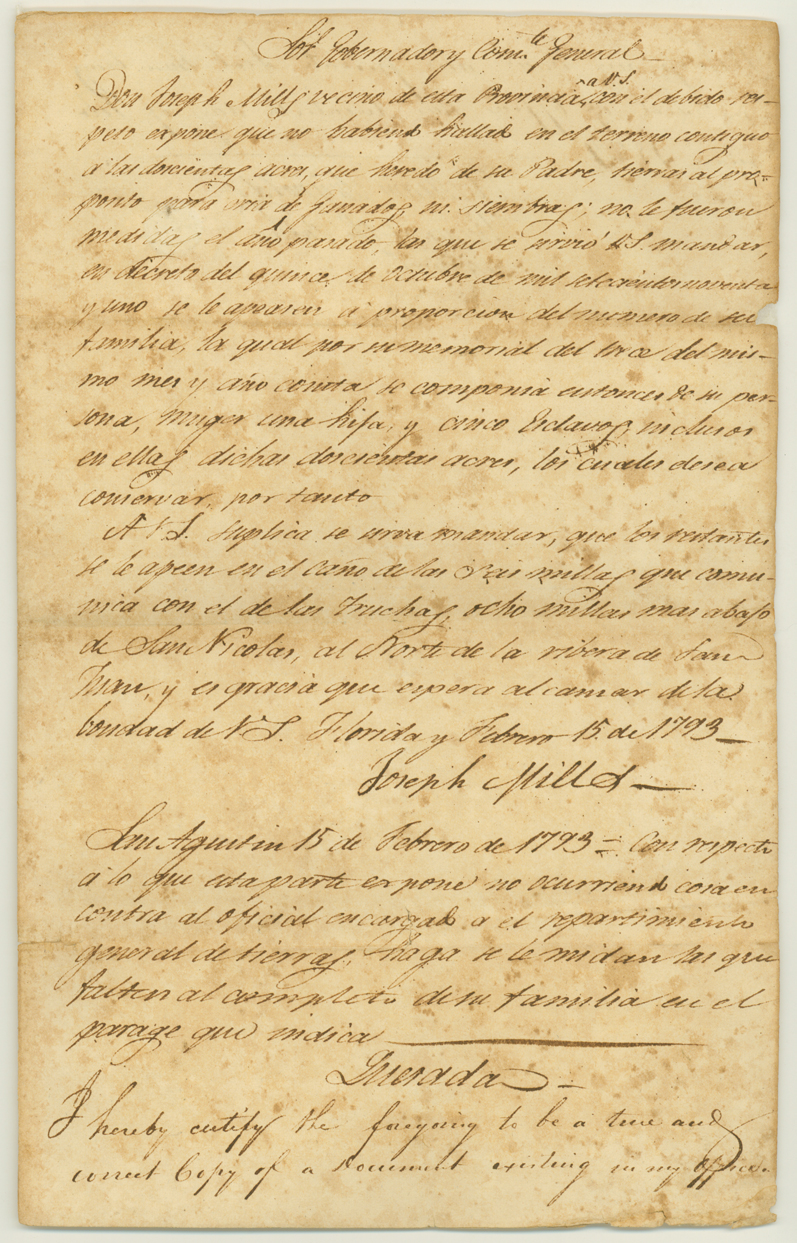 Sor. Gobernador y Comte. General
a V.S.
Don Joseph Mills vecino de esta Provincia, con el debido res-
peto expone que no habiend hallad en el terreno contiguo
a las doscientas acres, que heredó de su Padre, tierras al pro-
posito para cria de ganados, ni siembras; no le fueron
medidas el año pasado, las que se sirvió V.S. mandar,
en decreto del quince de octubre de mil setecientos noventa
y uno se le apeasen a proporcion del numero de su
familia, la qual por su memorial del trece del mis-
mo mes y año consta se componia entonces de su per-
sona, muger una hija, y cinco Esclavos, inclusos
en ellas dichas doscientas acres, los cuales desea
conservar, por tanto
A V.S. suplica se sirva mandar, que los restantes
se le apeen en el caño de las Seis millas que comu-
nica con el de las Truchas, ocho millas mas abajo
de San Nicolas, al Norte de la ribera de San
Juan, y es gracia que espera alcansar de la
bondad de V.S. Florida y Febrero 15 de 1793
Joseph Mills
San Agustin 15 de Febrero de 1793 = Con respecto
á lo que esta parte expone no ocurriend cosa en
contra al oficial encargad a el repartimiento
general de tierras, haga se le midan las que
falten al completo de su familia en el
parage que indica
Quesada
I hereby certify the foregoing to be a true and
correct Copy of a document existing in my office.